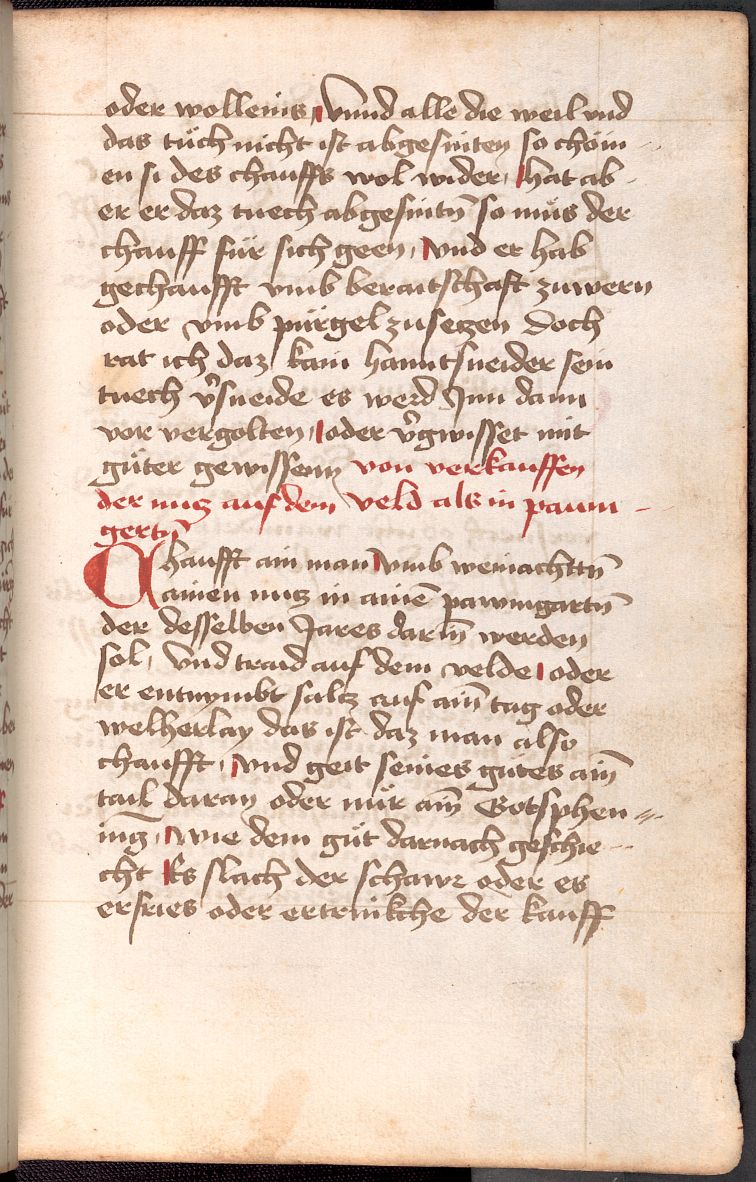 oder wolleins, Vnnd alle die weil vnd
das tuͤch nicht ist abgesniten so choͤm -
en si des chauffs wol wider, hat ab -
er er daz tuech abgesnitn̄ so muͤs der
chauff fuͤr sich geen, vnd er hab
gechaufft vmb beraitschaft zuwern
oder vmb puͤrgel zusetzen Doch
rat ich daz kain hanntsneider sein
tuech v̄sneide es werd Jm dann
vor vergolten, oder v̄gwisset mit
guͤter gewissenn von verkauffen
der nutz auf dem veld als in pawm -
gertn̄
Chaufft ain man vmb weinachttn̄
ainen nutz in ainē pawmgartn̄
der desselben Jares darin̄ werden
sol, Vnd traid auf dem velde oder
er entnymbt saltz auf ain̄ tag oder
welherlay das ist daz man also
chaufft, vnd geit seines gutes ain̄
tail daran oder nuͤr ain̄ Gotsphen -
ing, wie dem guͤt darnach geschie -
cht Es slach der schawr oder es
erfries oder ertrinkche der kauff